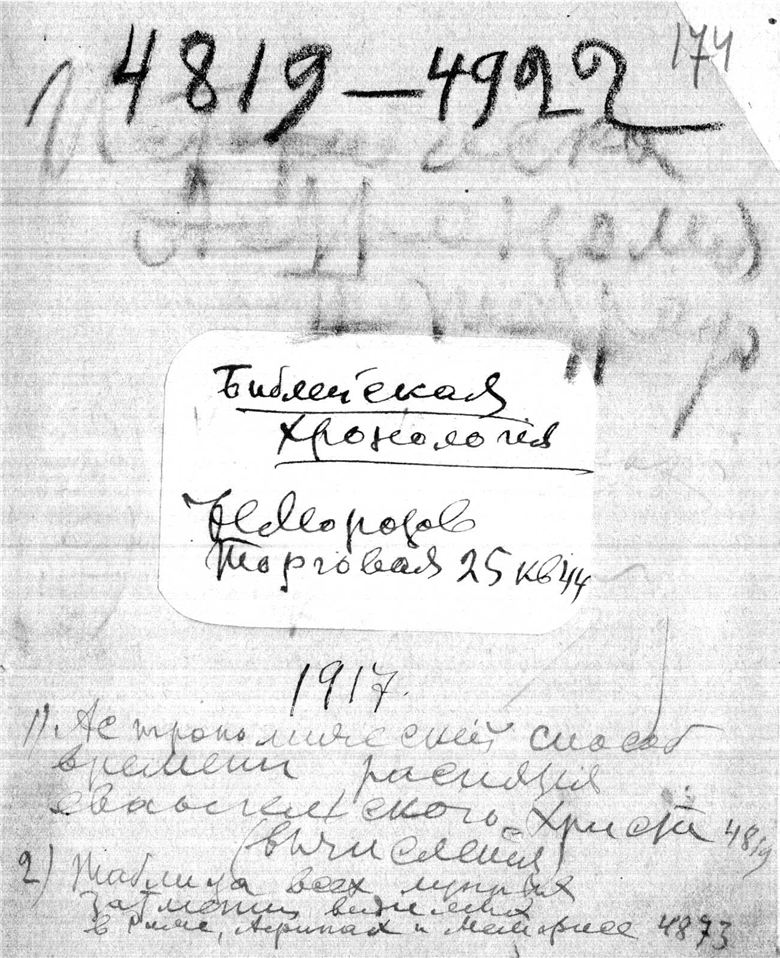 174
4819—4922
Историческая
Астрономия
Библейская
хронология
НАМорозов
Торговая 25 кв 44
1917.
1) Астрономический способ
времени распятия
евангельского Христа 4819
(вычисления)
2) Таблица всех лунных
затмений видимых
в Риме, Афинах и Мемфисе 4873